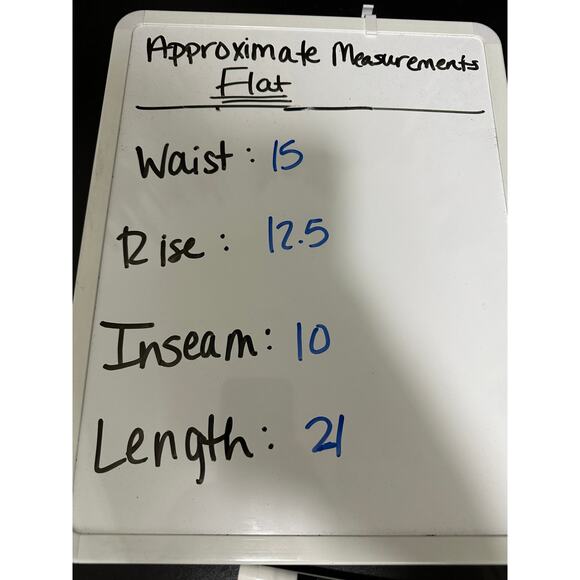 Approximate Measurements
Flat
Waist: 15
Rise: 12.5
Inseam: 10
Length: 21